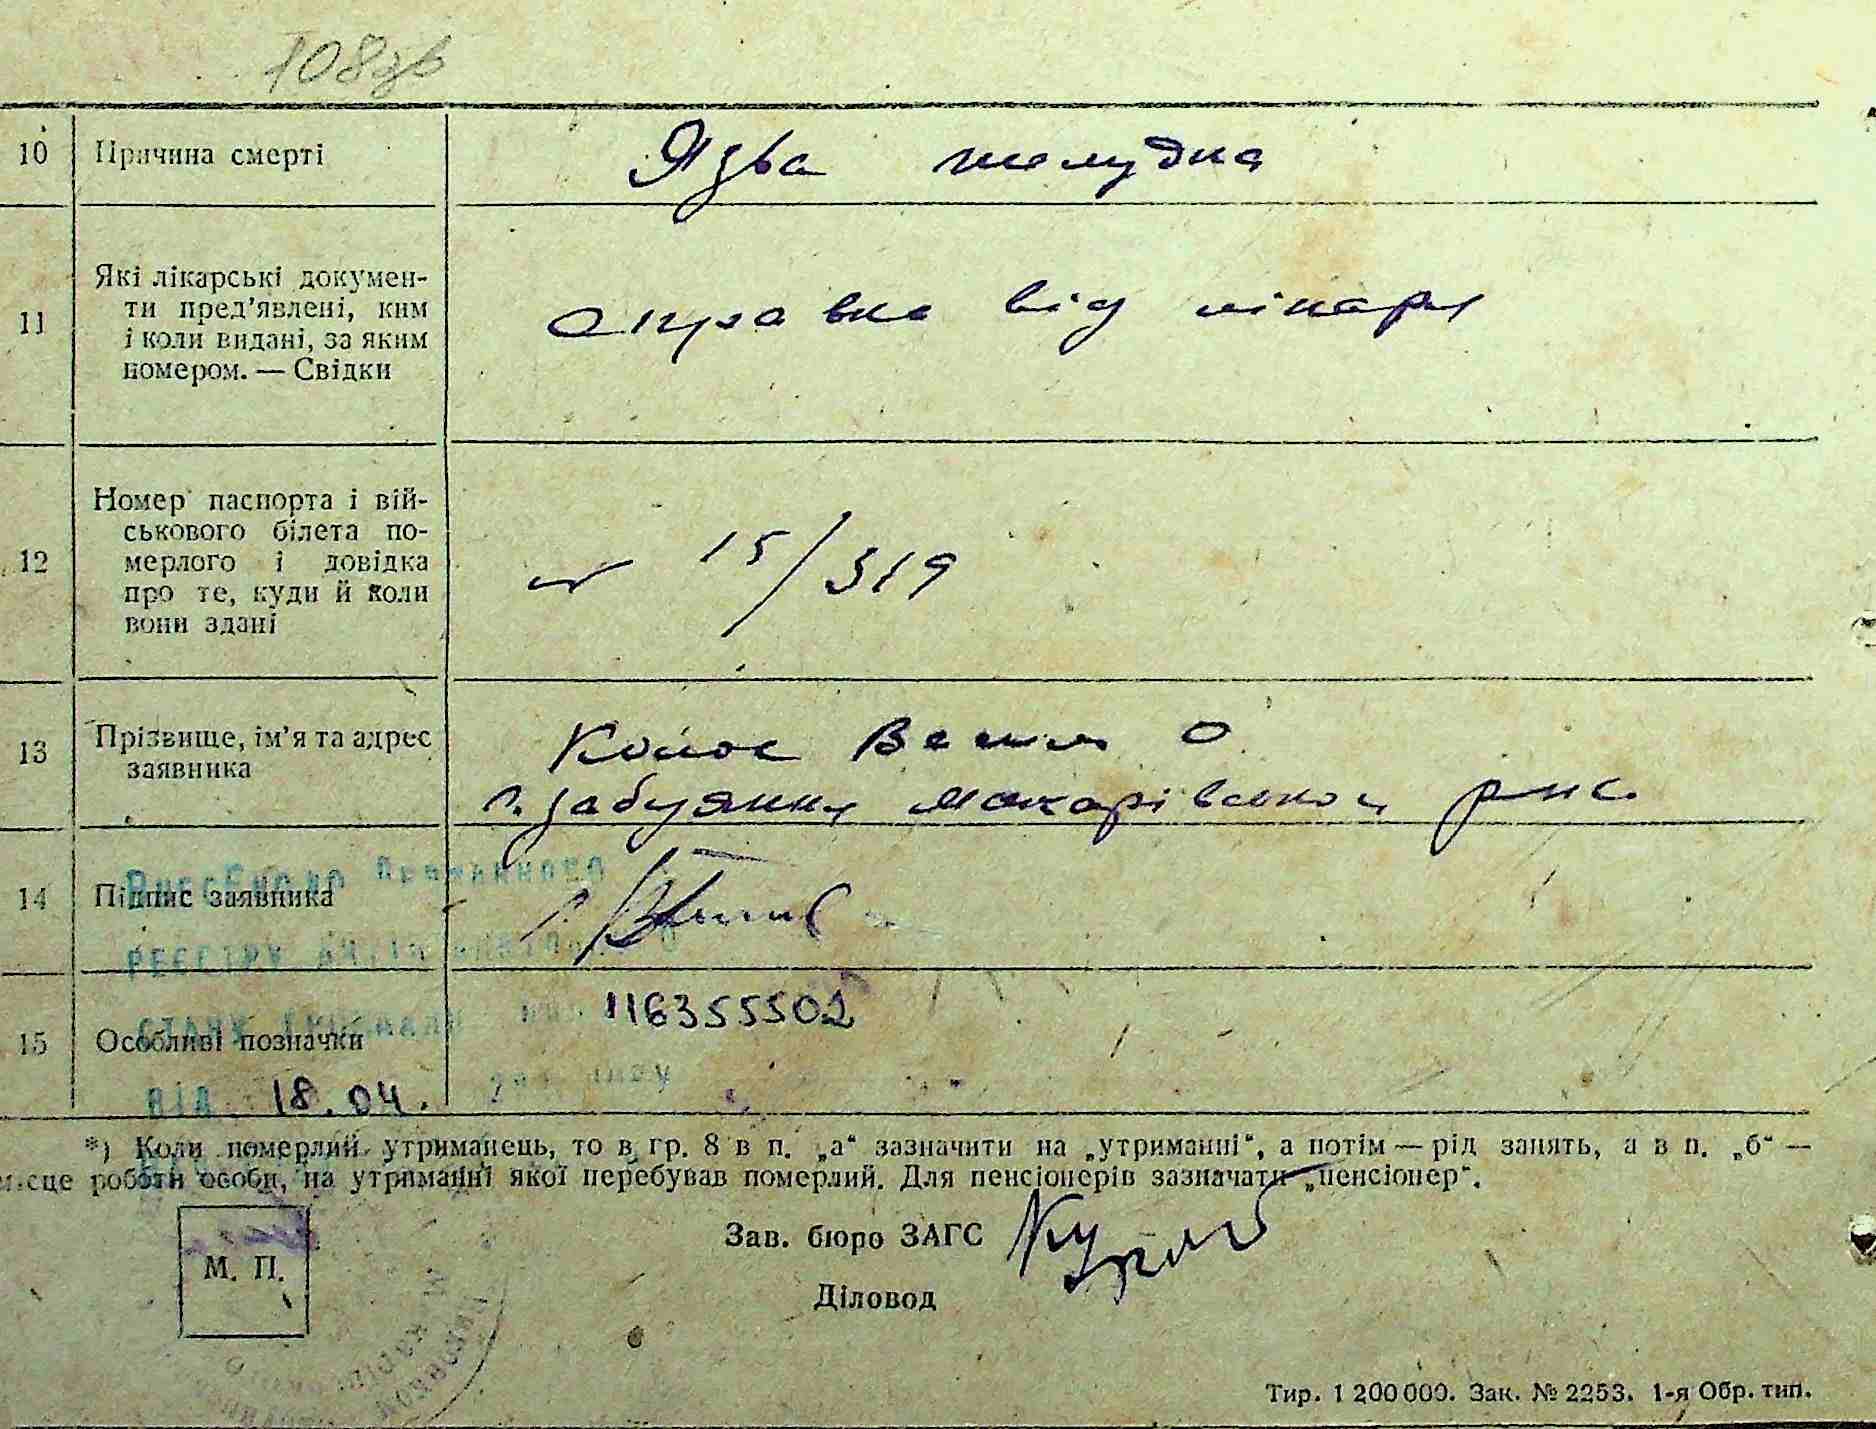 108зв
10 Причина смерті Язва желудка
11 Які лікарські докумен-
ти пред'явлені, ким
і коли видані, за яким
номером. — Свідки
справка від лікаря
12 Номер паспорта і вій-
ськового білета по-
мерлого і довідка
про те, куди й коли
вони здані
15/319
13 Прізвище, ім'я та адрес
заявника
Колос О
с. Забуяння Макарівського р-на
14 Підпис заявника
Внесено до Державного
реєстру актів
стану громадян
15 Особливі позначки 116355502
від 18.04.
*) Коли померлий утриманець, то в гр. 8 в п. „а“ зазначити на „утриманні“, а потім — рід занять, а в п. „б“ —
місце роботи особи, на утриманні якої перебував померлий. Для пенсіонерів зазначати „пенсіонер“.
М. П.
Зав. бюро ЗАГС
Діловод
Тир. 1 200 000. Зак. № 2253. 1-я Обр. тип.